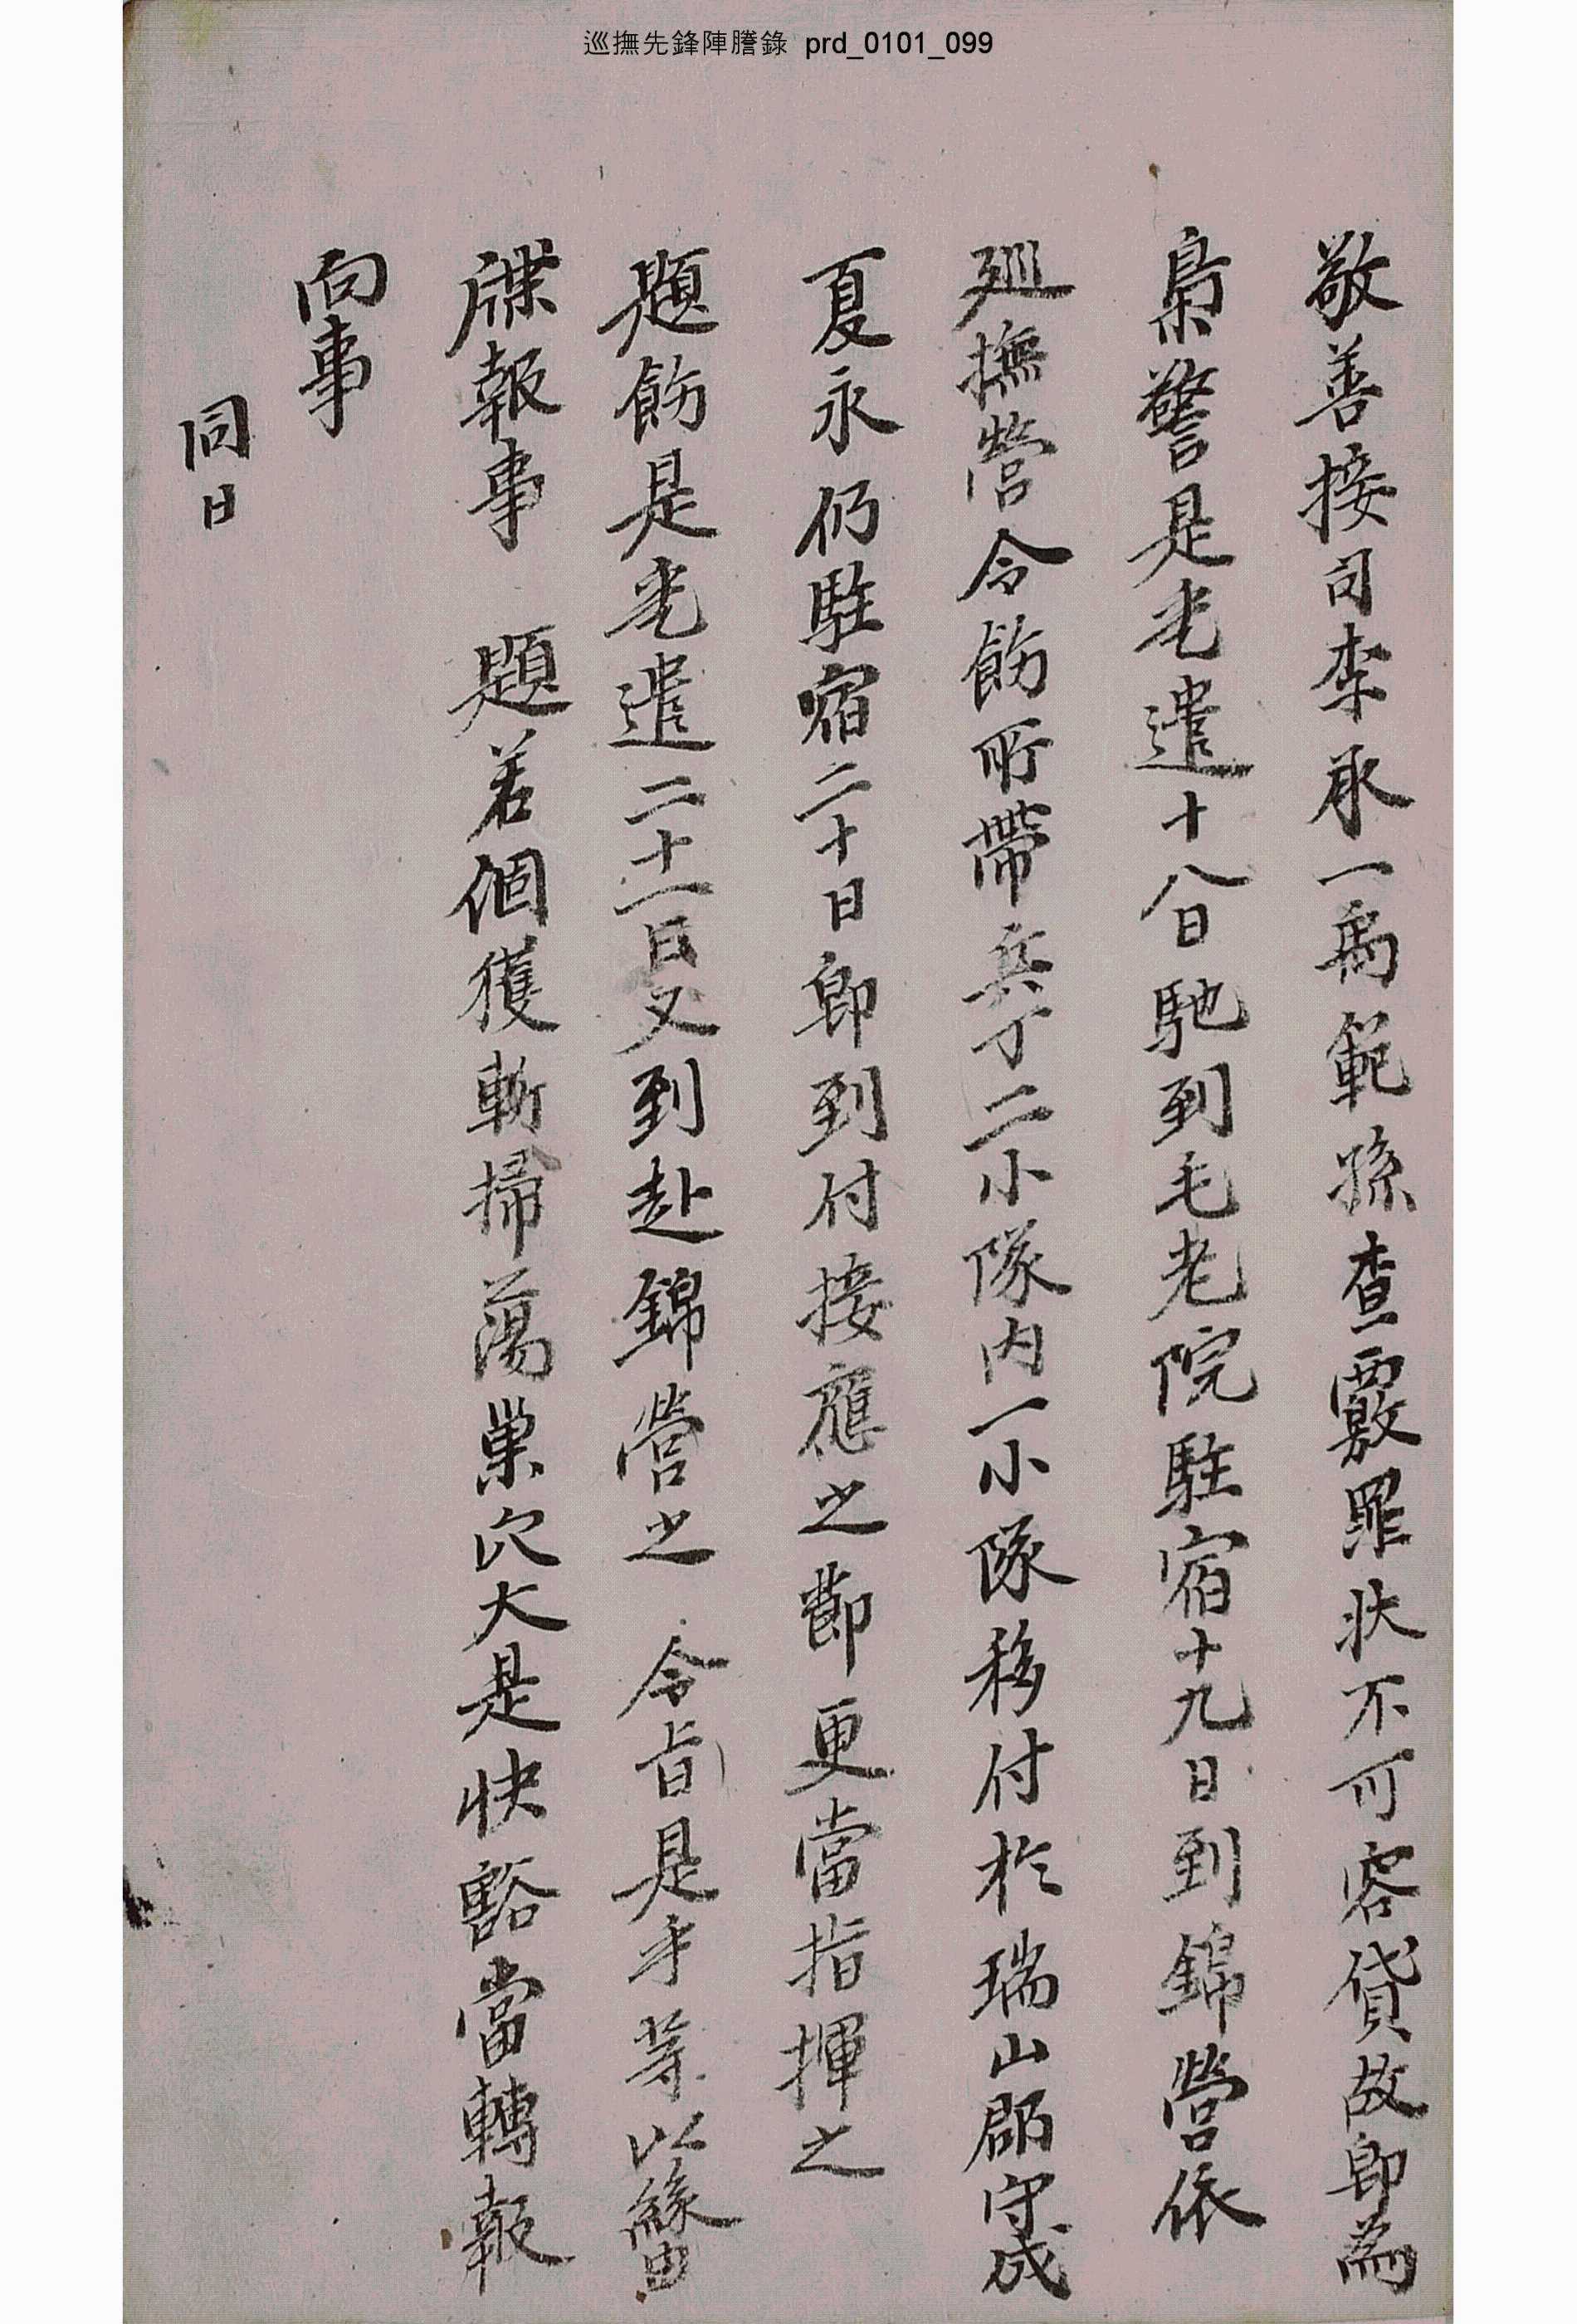 巡撫先鋒陣謄錄 prd_0101_099
敬善接司李承一禹範孫查覈罪狀不可容貸故卽爲
梟警是光遣十八日馳到毛老院駐宿十九日到錦營依
廵撫營令飭所帶兵丁二小隊內一小隊移付於瑞山郡守成
夏永仍駐宿二十日卽到付接應之節更當指揮之
題飭是光遣二十一日又到赴錦營之 令旨是乎等以緣由
牒報事 題若個獲斬掃蕩巢穴大是快豁當轉報
向事
同日